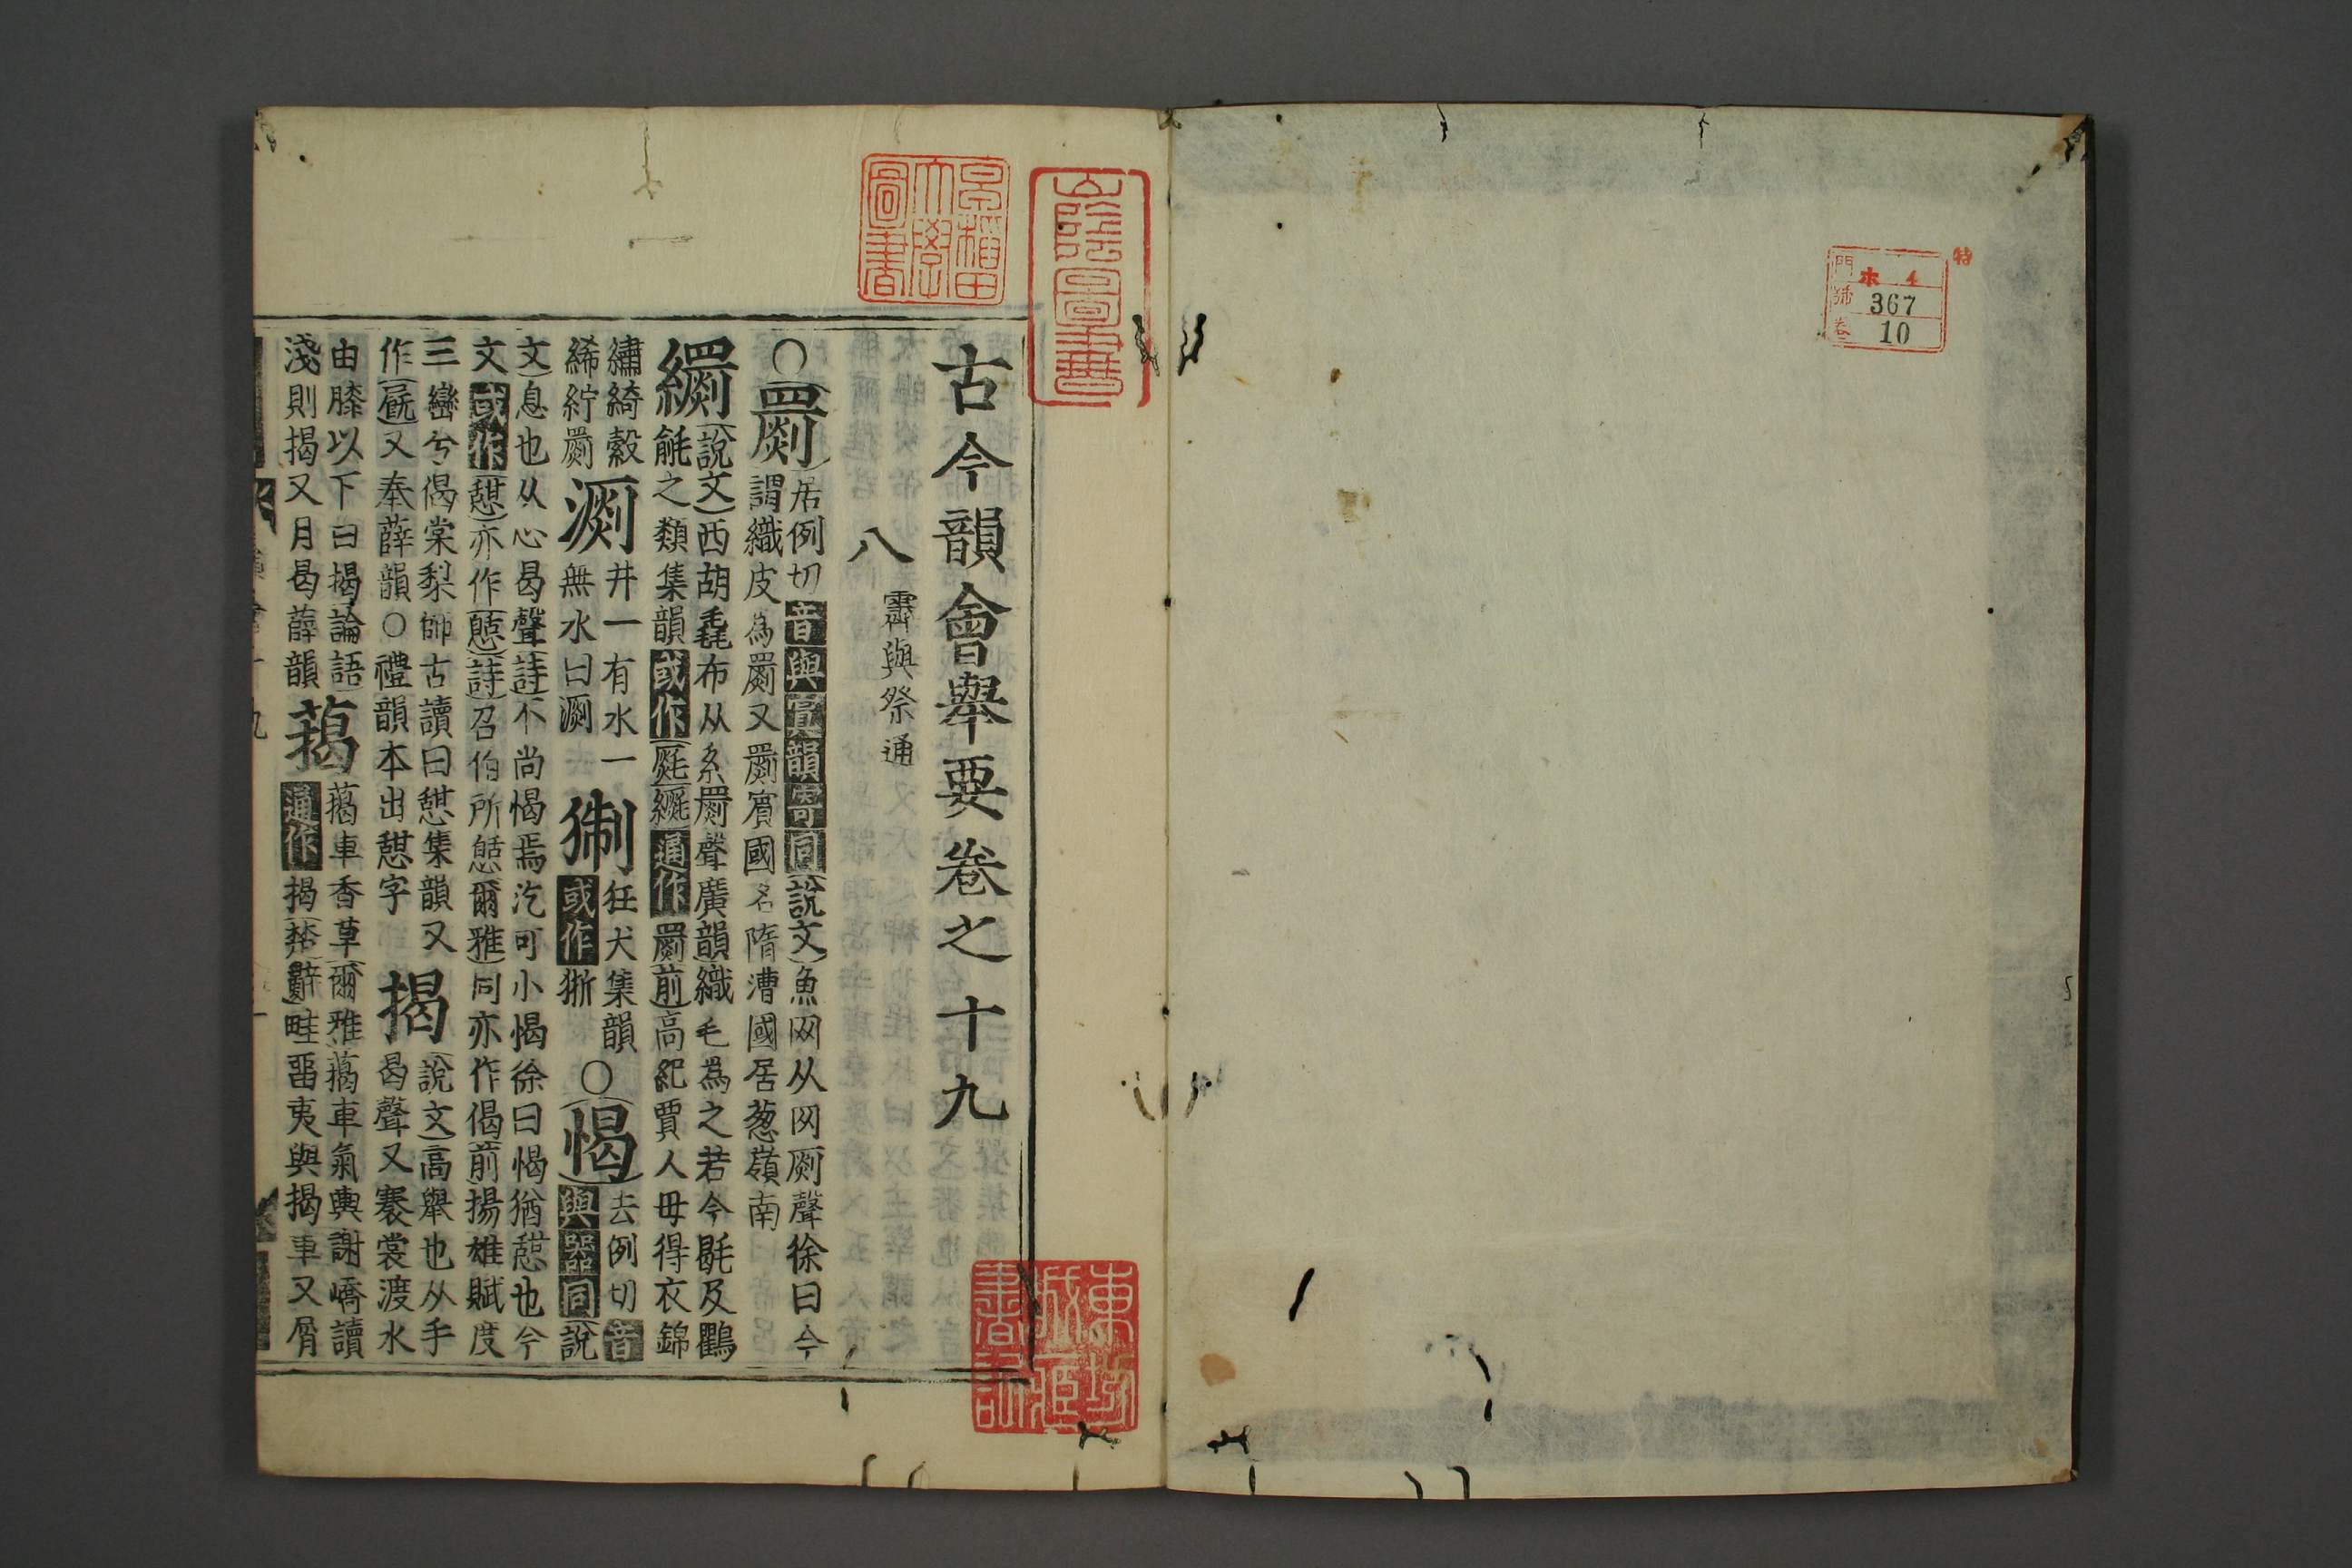 特
門 ホ 4
號 367
卷 10
山陰圖書
早稲田大學圖書
古今韻會舉要卷之十九
八
霽與祭通
○罽
居例切音與寘韻寄同說文魚网从网𠛱聲徐曰今
謂織皮為罽又罽賓國名隋漕國居葱嶺南
繝
說文西胡毳布从糸罽聲廣韻織毛為之若今毼及
毹之類集韻或作通作罽前高紀賈人毋得衣錦
繡綺縠
絺紵罽
㶜
井一有水一
無水曰㶜
猘
狂犬集韻
或作狾
○愒
去例切音
與器同說
文息也从心曷聲詩不尚愒焉汔可小愒徐曰愒猶憇也今
文或作憇亦作憩詩召伯所憩爾雅同亦作偈前揚雄賦度
三巒兮偈棠梨師古讀曰憇集韻又
作又奉薛韻○禮韻本出憇字
揭
說文高舉也从手
曷聲又褰裳渡水
由膝以下曰揭論語
淺則揭又月曷薛韻
藒
藒車香草爾雅藒車氣輿謝嶠讀
通作揭楚辭畦留夷與揭車又屑
東城書記